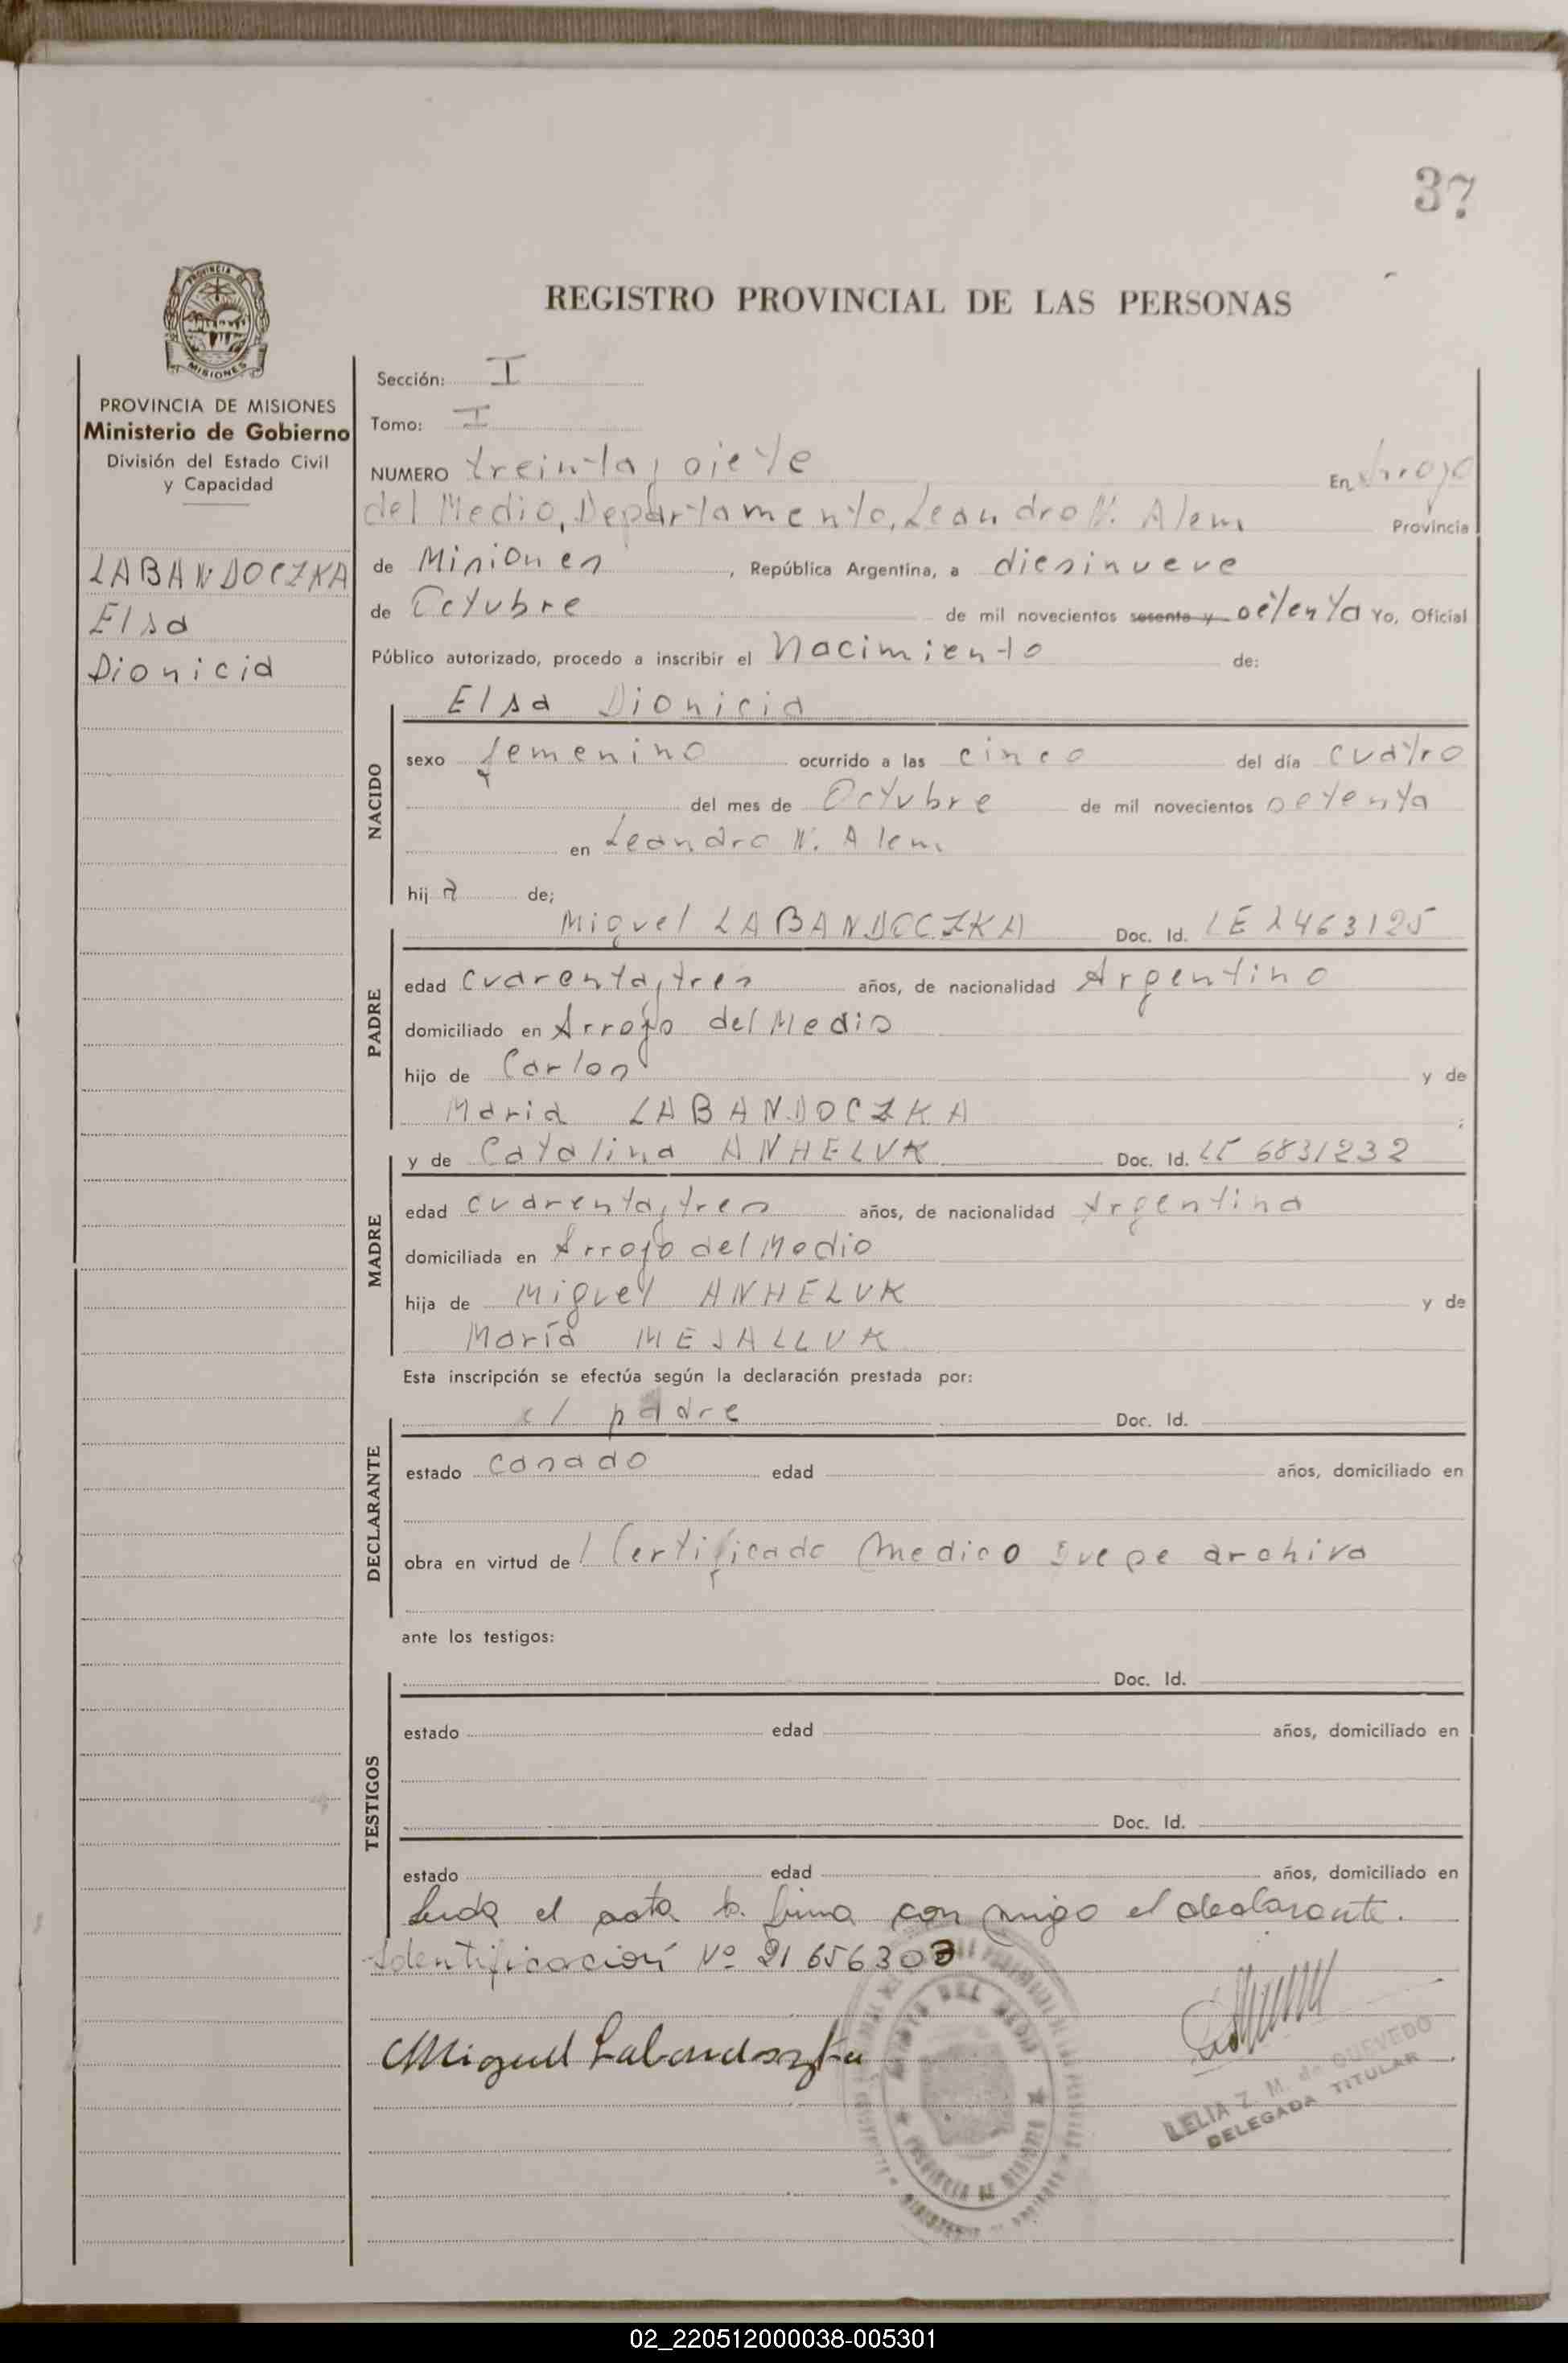 37
PROVINCIA DE MISIONES
REGISTRO PROVINCIAL DE LAS PERSONAS
PROVINCIA DE MISIONES
Ministerio de Gobierno
División del Estado Civil
y Capacidad
LABANDOCZKA
Elsa
Dionicia
Sección: I
Tomo: I
NUMERO treinta y siete En Arroyo
del Medio, Departamento, Leandro N. Alem Provincia
de Misiones, República Argentina, a diesinueve
de Octubre de mil novecientos sesenta y setenta Yo, Oficial
Público autorizado, procedo a inscribir el Nacimiento de:
Elsa Dionicia
NACIDO
sexo femenino ocurrido a las cinco del día cuatro
del mes de Octubre de mil novecientos setenta
en Leandro N. Alem
hij a de;
Miguel LABANDOCZKA Doc. Id. LE 2463125
PADRE
edad cuarenta y tres años, de nacionalidad Argentino
domiciliado en Arroyo del Medio
hijo de Carlos y de
Maria LABANDOCZKA ;
y de Catalina ANHELUK Doc. Id. 6831232
MADRE
edad cuarenta y tres años, de nacionalidad Argentina
domiciliada en Arroyo del Medio
hija de Miguel ANHELUK y de
María MEJALLUK
Esta inscripción se efectúa según la declaración prestada por:
el padre Doc. Id.
DECLARANTE
estado casado edad años, domiciliado en
obra en virtud de 1 Certificado Medico que se archiva
ante los testigos:
Doc. Id.
TESTIGOS
estado edad años, domiciliado en
Doc. Id.
estado edad años, domiciliado en
Leida el acta la firma con migo el declarante.
Identificación Nº 21 656303
Miguel Labandoszka
LELIA Z. M. de QUEVEDO
DELEGADA TITULAR
02_220512000038-005301